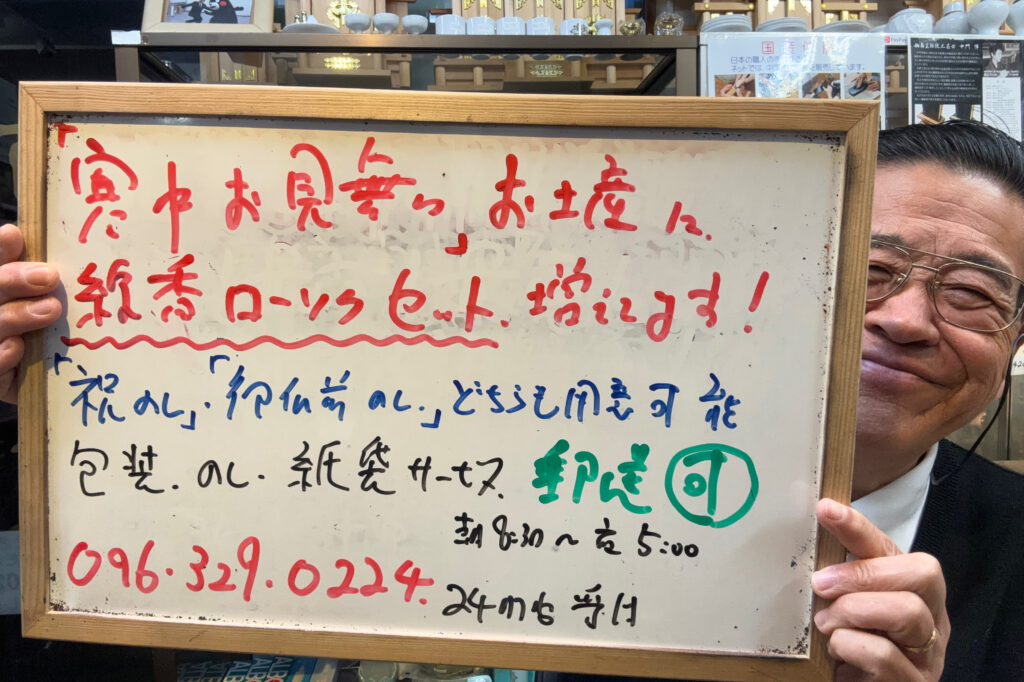 「寒中お見舞い」お土産に
線香ローソクセット、増えてます!
「祝のし」・「御仏前のし」どちらも用意可能
包装・のし・紙袋サービス 郵送可
朝8:30〜店5:00
096・329・0224.
受付
日本の職人の